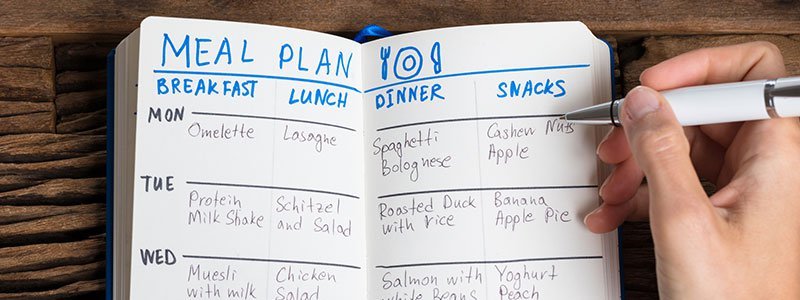 MEAL PLAN
BREAKFAST LUNCH DINNER SNACKS
MON
Omelette
Lasagne
Spaghetti
Bolognese
Cashew Nuts
Apple
TUE
Protein
Milk Shake
Schitzel
and Salad
Roasted Duck
with rice
Banana
Apple Pie
WED
Muesli
with milk
Chicken
Salad
Salmon with
white Beans
Yoghurt
Peach